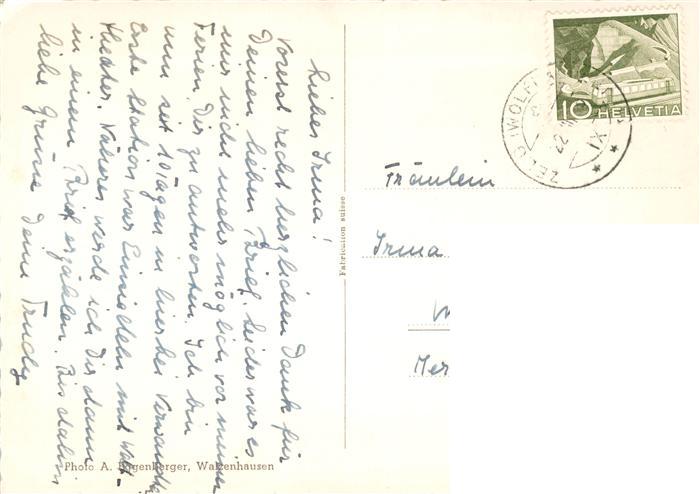 Liebes Irma!
Vorerst recht herzlichen Dank für
Deinen lieben Brief. Leider war es
mir nicht mehr möglich vor meinen
Ferien Dir zu antworten. Ich bin
nun seit 10 Tagen in hier bei Verwandten
Erste Station war Einsiedeln mit Welt-
theater. Näheres werde ich Dir dann
in einem Brief erzählen. Bis dahin
liebe Grüsse Deine Trudy
Photo A. Eggenberger, Walzenhausen
Fabrication suisse
10 HELVETIA
ZELL (WOLF
Fräulein
Irma
Mer